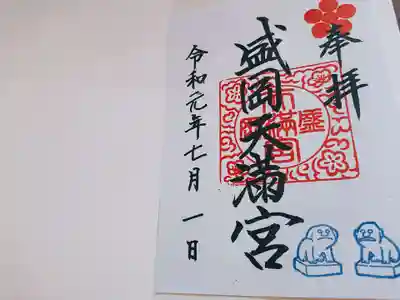 奉拝
盛岡天満宮
令和元年七月一日